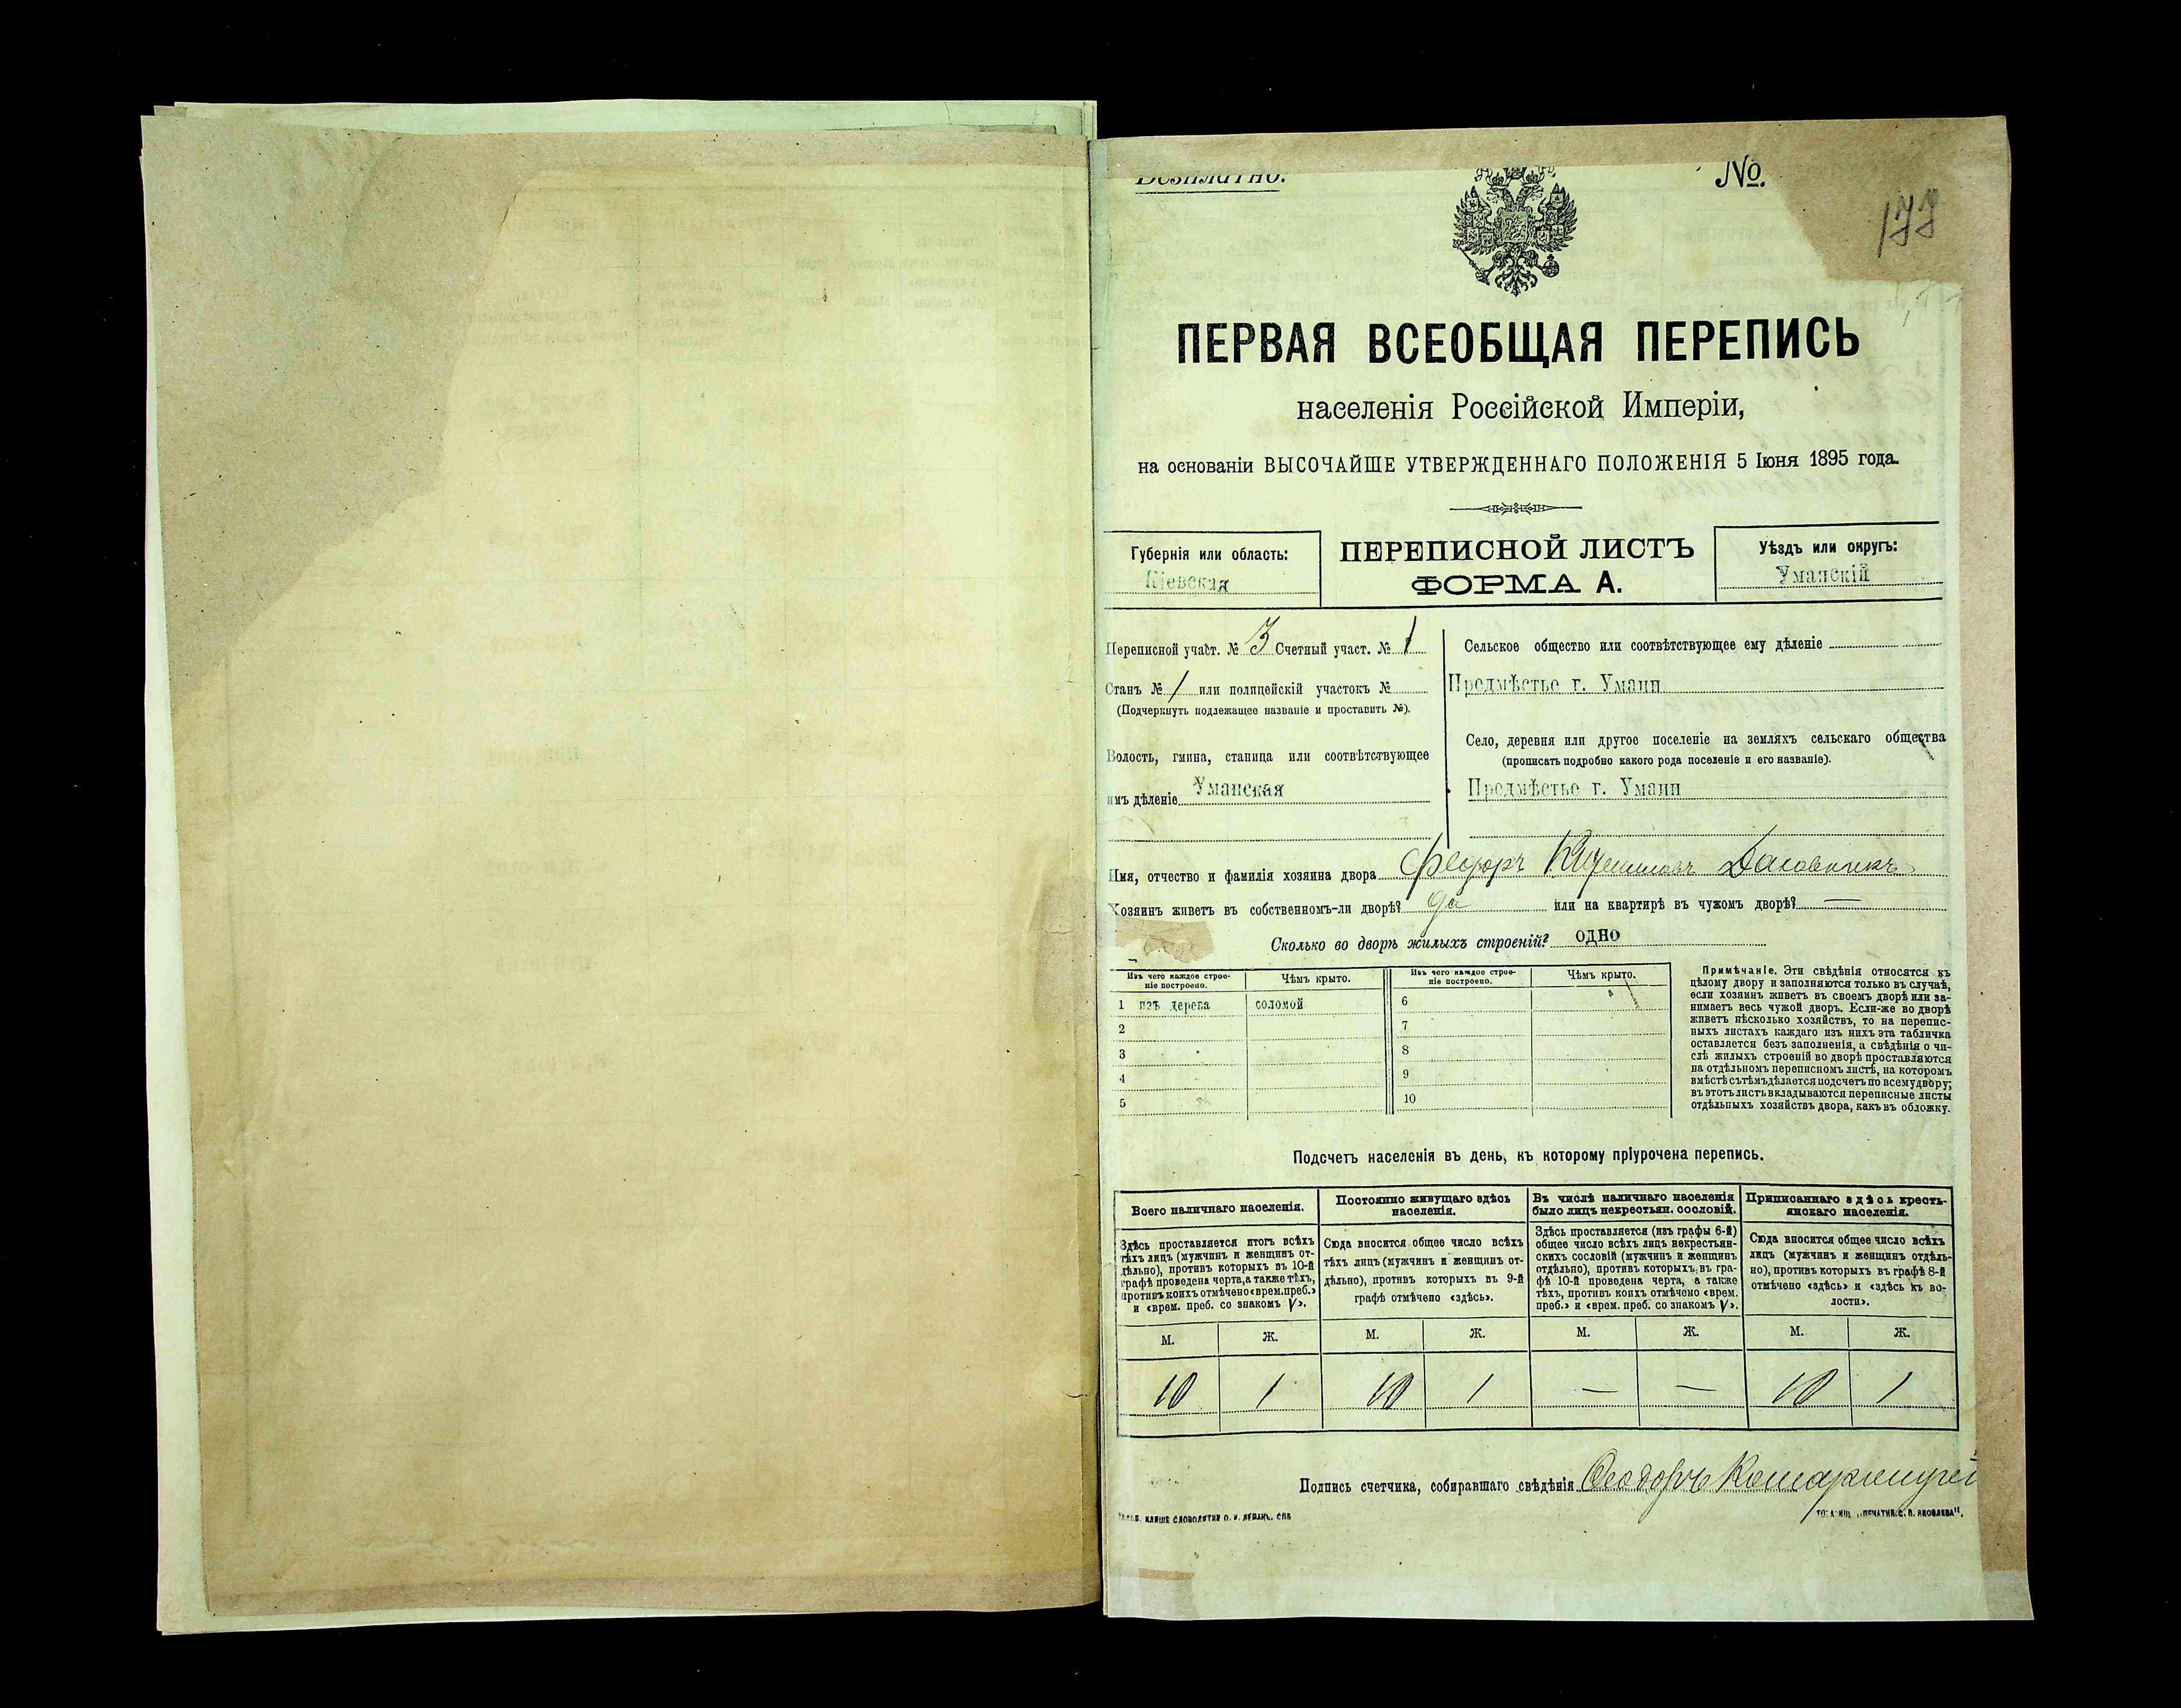 Безплатно.
№.
177
ПЕРВАЯ ВСЕОБЩАЯ ПЕРЕПИСЬ
населенія Россійской Имперіи,
на основаніи ВЫСОЧАЙШЕ УТВЕРЖДЕННАГО ПОЛОЖЕНІЯ 5 Іюня 1895 года.
Губернія или область:
Кіевская
ПЕРЕПИСНОЙ ЛИСТЪ
ФОРМА А.
Уѣздъ или округъ:
Уманскій
Переписной участ. № 3 Счетный участ. № 1
Станъ № 1 или полицейскій участокъ №
(Подчеркнуть подлежащее названіе и проставить №).
Волость, гмина, станица или соотвѣтствующее
имъ дѣленіе Уманская
Сельское общество или соотвѣтствующее ему дѣленіе
Предмѣстье г. Умани
Село, деревня или другое поселеніе на земляхъ сельскаго общества
(прописать подробно какого рода поселеніе и его названіе).
Предмѣстье г. Умани
Имя, отчество и фамилія хозяина двора Феодоръ
Хозяинъ живетъ въ собственномъ-ли дворѣ? да или на квартирѣ въ чужомъ дворѣ? —
Сколько во дворѣ жилыхъ строеній? одно
Изъ чего каждое строе-
ніе построено.
Чѣмъ крыто.
Изъ чего каждое строе-
ніе построено.
Чѣмъ крыто.
1 изъ дерева соломой 6
2 7
3 8
4 9
5 10
Примѣчаніе. Эти свѣдѣнія относятся къ
цѣлому двору и заполняются только въ случаѣ,
если хозяинъ живетъ въ своемъ дворѣ или за-
нимаетъ весь чужой дворъ. Если-же во дворѣ
живетъ нѣсколько хозяйствъ, то на перепис-
ныхъ листахъ каждаго изъ нихъ эта табличка
оставляется безъ заполненія, а свѣдѣнія о чи-
слѣ жилыхъ строеній во дворѣ проставляются
на отдѣльномъ переписномъ листѣ, на которомъ
вмѣстѣ съ тѣмъ дѣлается подсчетъ по всему двору;
въ этотъ листъ вкладываются переписные листы
отдѣльныхъ хозяйствъ двора, какъ въ обложку.
Подсчетъ населенія въ день, къ которому пріурочена перепись.
Всего наличнаго населенія.
Здѣсь проставляется итогъ всѣхъ
тѣхъ лицъ (мужчинъ и женщинъ от-
дѣльно), противъ которыхъ въ 10-й
графѣ проведена черта, а также тѣхъ,
противъ коихъ отмѣчено «врем. преб.»
и «врем. преб. со знакомъ V».
Постоянно живущаго здѣсь
населенія.
Сюда вносится общее число всѣхъ
тѣхъ лицъ (мужчинъ и женщинъ от-
дѣльно), противъ которыхъ въ 9-й
графѣ отмѣчено «здѣсь».
Въ числѣ наличнаго населенія
было лицъ некрестьян. сословій.
Здѣсь проставляется (изъ графы 6-й)
общее число всѣхъ лицъ некрестьян-
скихъ сословій (мужчинъ и женщинъ
отдѣльно), противъ которыхъ въ гра-
фѣ 10-й проведена черта, а также
тѣхъ, противъ коихъ отмѣчено «врем.
преб.» и «врем. преб. со знакомъ V».
Приписаннаго здѣсь кресть-
янскаго населенія.
Сюда вносится общее число всѣхъ
лицъ (мужчинъ и женщинъ отдѣль-
но), противъ которыхъ въ графѣ 8-й
отмѣчено «здѣсь» и «здѣсь къ во-
лости».
М. Ж. М. Ж. М. Ж. М. Ж.
10 1 10 1 — — 10 1
Подпись счетчика, собиравшаго свѣдѣнія Ѳеодоръ